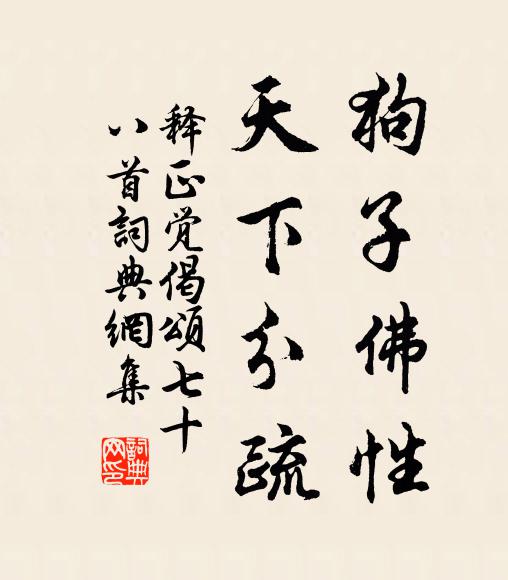 狗子佛性
天下分疏
释正觉偈颂七十
八首詞典網集
詞典
网印